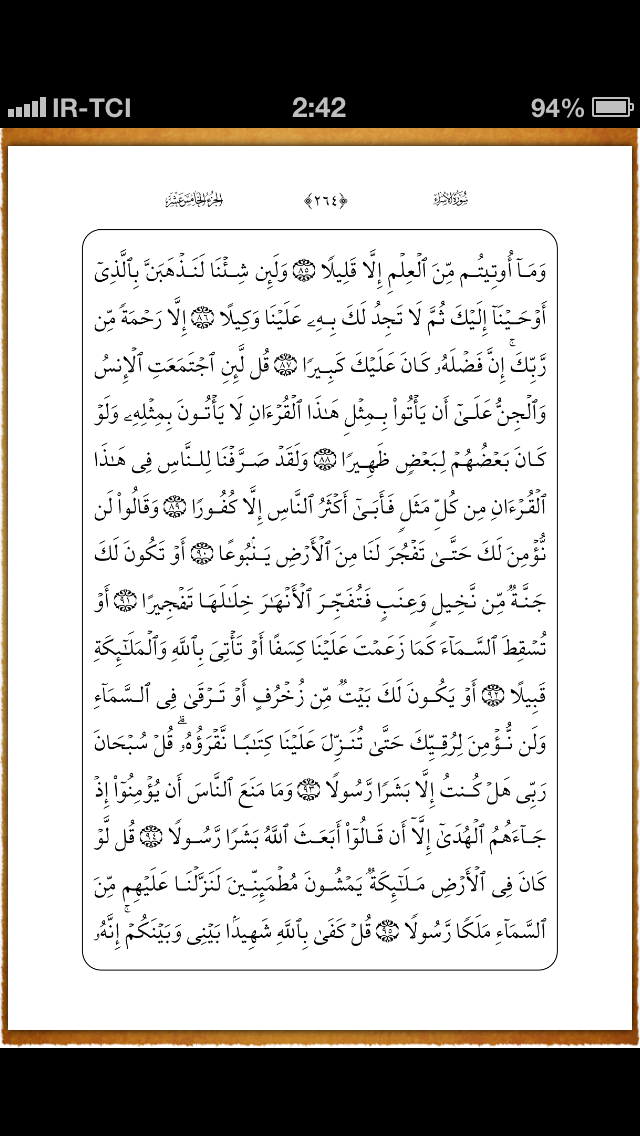 IR-TCI 2:42 94%
سُورَةُ الإِسۡرَاءِ ﴿٢٦٤﴾ الجُزۡءُ الخَامِسَ عَشَرَ
وَمَآ أُوتِيتُم مِّنَ ٱلۡعِلۡمِ إِلَّا قَلِيلًا ٨٥ وَلَئِن شِئۡنَا لَنَذۡهَبَنَّ بِٱلَّذِىٓ
أَوۡحَيۡنَآ إِلَيۡكَ ثُمَّ لَا تَجِدُ لَكَ بِهِۦ عَلَيۡنَا وَكِيلًا ٨٦ إِلَّا رَحۡمَةً مِّن
رَّبِّكَۚ إِنَّ فَضۡلَهُۥ كَانَ عَلَيۡكَ كَبِيرًا ٨٧ قُل لَّئِنِ ٱجۡتَمَعَتِ ٱلۡإِنسُ
وَٱلۡجِنُّ عَلَىٰٓ أَن يَأۡتُواْ بِمِثۡلِ هَـٰذَا ٱلۡقُرۡءَانِ لَا يَأۡتُونَ بِمِثۡلِهِۦ وَلَوۡ
كَانَ بَعۡضُهُمۡ لِبَعۡضٍ ظَهِيرًا ٨٨ وَلَقَدۡ صَرَّفۡنَا لِلنَّاسِ فِى هَـٰذَا
ٱلۡقُرۡءَانِ مِن كُلِّ مَثَلٍ فَأَبَىٰٓ أَكۡثَرُ ٱلنَّاسِ إِلَّا كُفُورًا ٨٩ وَقَالُواْ لَن
نُّؤۡمِنَ لَكَ حَتَّىٰ تَفۡجُرَ لَنَا مِنَ ٱلۡأَرۡضِ يَنۢبُوعًا ٩٠ أَوۡ تَكُونَ لَكَ
جَنَّةٌ مِّن نَّخِيلٍ وَعِنَبٍ فَتُفَجِّرَ ٱلۡأَنۡهَـٰرَ خِلَـٰلَهَا تَفۡجِيرًا ٩١ أَوۡ
تُسۡقِطَ ٱلسَّمَآءَ كَمَا زَعَمۡتَ عَلَيۡنَا كِسَفًا أَوۡ تَأۡتِىَ بِٱللَّهِ وَٱلۡمَلَـٰٓئِكَةِ
قَبِيلًا ٩٢ أَوۡ يَكُونَ لَكَ بَيۡتٌ مِّن زُخۡرُفٍ أَوۡ تَرۡقَىٰ فِى ٱلسَّمَآءِ
وَلَن نُّؤۡمِنَ لِرُقِيِّكَ حَتَّىٰ تُنَزِّلَ عَلَيۡنَا كِتَـٰبًا نَّقۡرَؤُهُۥۗ قُلۡ سُبۡحَانَ
رَبِّى هَلۡ كُنتُ إِلَّا بَشَرًا رَّسُولًا ٩٣ وَمَا مَنَعَ ٱلنَّاسَ أَن يُؤۡمِنُوٓاْ إِذۡ
جَآءَهُمُ ٱلۡهُدَىٰٓ إِلَّآ أَن قَالُوٓاْ أَبَعَثَ ٱللَّهُ بَشَرًا رَّسُولًا ٩٤ قُل لَّوۡ
كَانَ فِى ٱلۡأَرۡضِ مَلَـٰٓئِكَةٌ يَمۡشُونَ مُطۡمَئِنِّينَ لَنَزَّلۡنَا عَلَيۡهِم مِّنَ
ٱلسَّمَآءِ مَلَكًا رَّسُولًا ٩٥ قُلۡ كَفَىٰ بِٱللَّهِ شَهِيدًۢا بَيۡنِى وَبَيۡنَكُمۡۚ إِنَّهُۥ